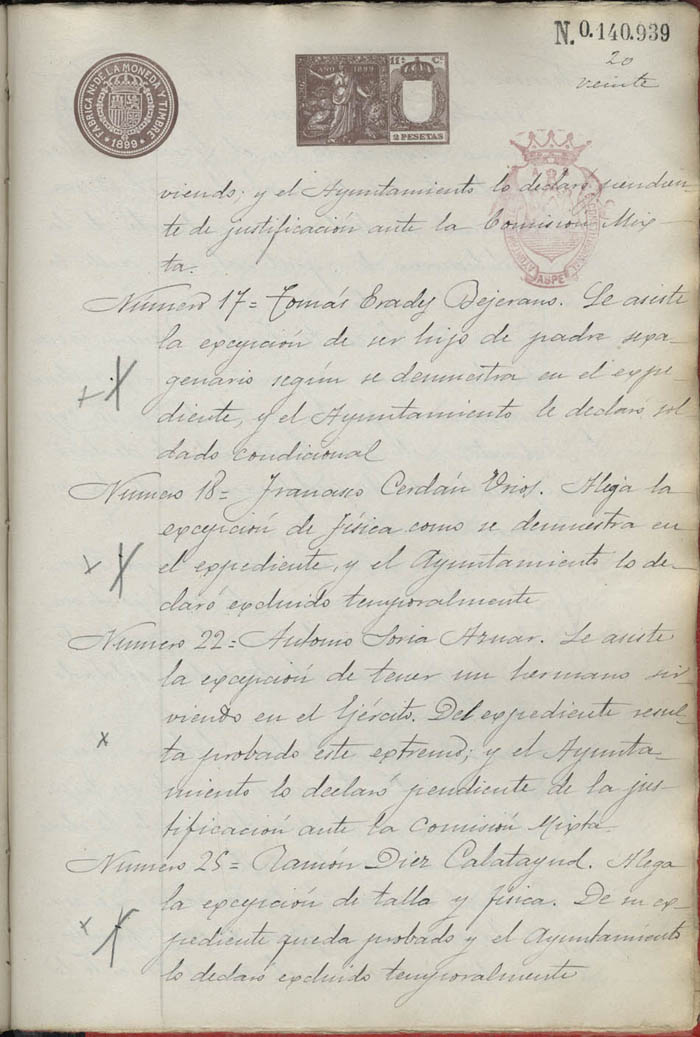 N. 0.140.939
20
veinte
FÁBRICA NAL. DE LA MONEDA Y TIMBRE
1899
AÑO 1899
11ª Cᴱ
2 PESETAS
ASPE
viendo; y el Ayuntamiento lo declaró pendien-
te de justificación ante la Comisión Mix-
ta.
Numero 17= Tomás Erades Bejerano. Le asiste
la excepción de ser hijo de padre sexa-
genario según se demuestra en el expe-
diente, y el Ayuntamiento le declaró sol
dado condicional
Numero 18= Francisco Cerdán Urios. Alega la
excepción de física como se demuestra en
el expediente, y el Ayuntamiento lo de-
claró excluido temporalmente
Numero 22= Antonio Soria Aznar. Le asiste
la excepción de tener un hermano sir-
viendo en el Ejército. Del expediente resul-
ta probado este extremo; y el Ayunta-
miento lo declaró pendiente de la jus-
tificación ante la Comisión Mixta
Numero 25= Ramón Diez Calatayud. Alega
la excepción de talla y física. De su ex-
pediente queda probado y el Ayuntamiento
lo declaró excluido temporalmente